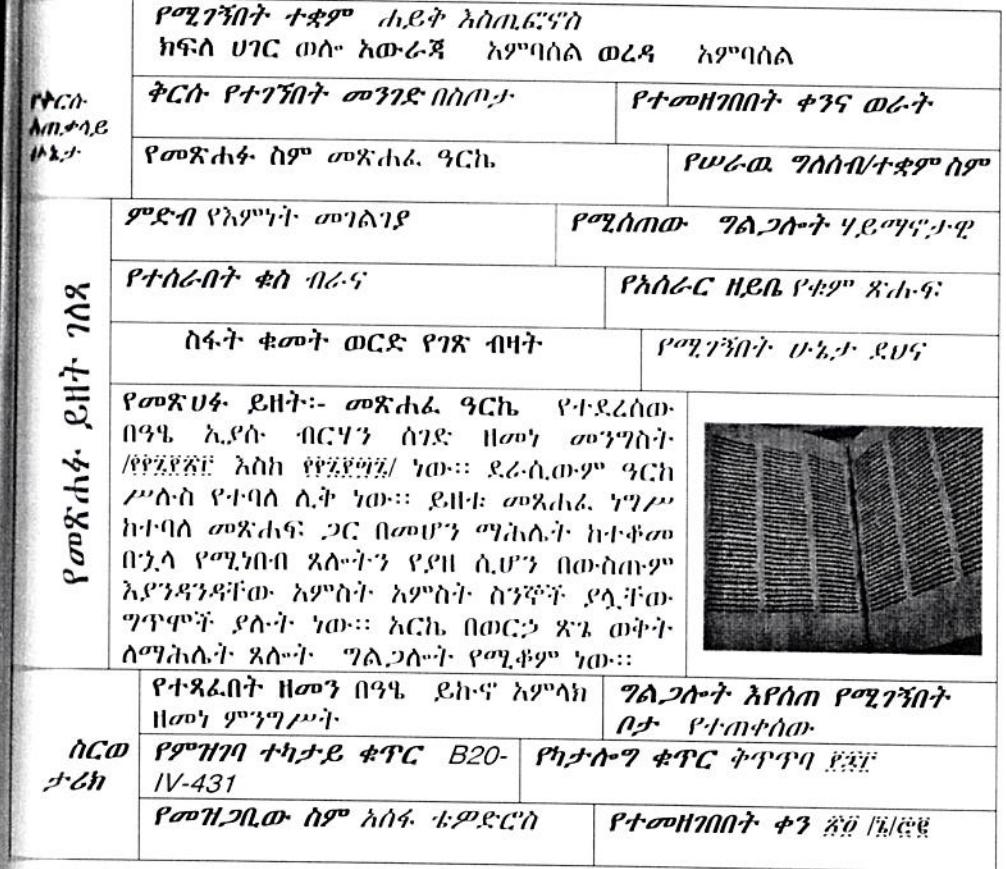 የሚገኝበት ተቋም ሐይቅ እስጢፎኖስ
ክፍለ ሀገር ወሎ አውራጃ አምባሰል ወረዳ አምባሰል
የቅርሱ
አጠቃላይ
ሁኔታ
ቅርሱ የተገኘበት መንገድ በስጦታ
የተመዘገበበት ቀንና ወራት
የመጽሐፉ ስም መጽሐፈ ዓርኬ
የሠራዉ ግለሰብ/ተቋም ስም
የመጽሐፉ ይዘት ገለጻ
ምድብ የእምነት መገልገያ
የሚሰጠው ግልጋሎት ሃይማኖታዊ
የተሰራበት ቁስ ብራና
የአሰራር ዘይቤ የቁም ጽሑፍ
ስፋት ቁመት ወርድ የገጽ ብዛት
የሚገኝበት ሁኔታ ደህና
የመጽሀፉ ይዘት፡- መጽሐፈ ዓርኬ የተደረሰው
በዓፄ ኢያሱ ብርሃን ሰገድ ዘመነ መንግስት
እስከ ነው። ደራሲውም ዓርከ
ሥሉስ የተባለ ሊቅ ነው። ይዘቱ መጸሐፈ ነግሥ
ከተባለ መጽሐፍ ጋር በመሆን ማሕሌት ከተቆመ
በኋላ የሚነበብ ጸሎትን የያዘ ሲሆን በውስጡም
እያንዳንዳቸው አምስት አምስት ስንኞች ያሏቸው
ግጥሞች ያሉት ነው። አርኬ በወርኃ ጽጌ ወቅት
ለማሕሌት ጸሎት ግልጋሎት የሚቆም ነው።
ስርወ
ታሪክ
የተጻፈበት ዘመን በዓፄ ይኩኖ አምላክ
ዘመነ ምንግሥት
ግልጋሎት እየሰጠ የሚገኝበት
ቦታ የተጠቀሰው
የምዝገባ ተካታይ ቁጥር B20-
IV-431
የካታሎግ ቁጥር ቅጥጥባ
የመዝጋቢው ስም አሰፋ ቴዎድሮስ
የተመዘገበበት ቀን